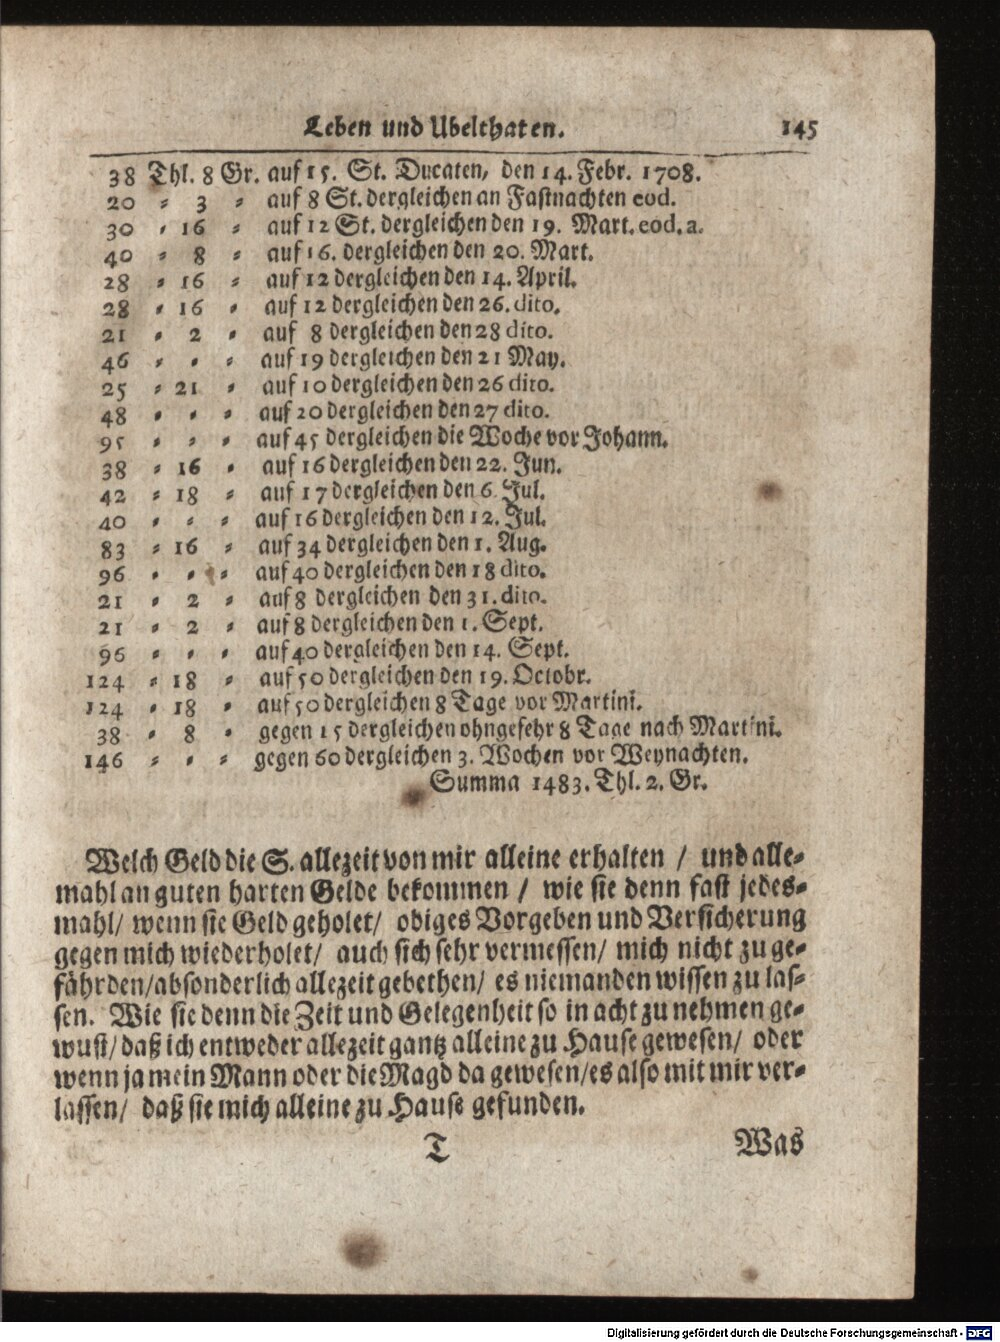 Leben und Ubelthaten. 145
38 Thl. 8 Gr. auf 15. St. Ducaten, den 14. Febr. 1708.
20 = 3 = auf 8 St. dergleichen an Fastnachten eod.
30 = 16 = auf 12 St. dergleichen den 19. Mart. eod. a.
40 = 8 = auf 16. dergleichen den 20. Mart.
28 = 16 = auf 12 dergleichen den 14. April.
28 = 16 = auf 12 dergleichen den 26. dito.
21 = 2 = auf 8 dergleichen den 28 dito.
46 = = = auf 19 dergleichen den 21 May.
25 = 21 = auf 10 dergleichen den 26 dito.
48 = = = auf 20 dergleichen den 27 dito.
95 = = = auf 45 dergleichen die Woche vor Johann.
38 = 16 = auf 16 dergleichen den 22. Jun.
42 = 18 = auf 17 dergleichen den 6. Jul.
40 = = = auf 16 dergleichen den 12. Jul.
83 = 16 = auf 34 dergleichen den 1. Aug.
96 = = = auf 40 dergleichen den 18 dito.
21 = 2 = auf 8 dergleichen den 31. dito.
21 = 2 = auf 8 dergleichen den 1. Sept.
96 = = = auf 40 dergleichen den 14. Sept.
124 = 18 = auf 50 dergleichen den 19. Octobr.
124 = 18 = auf 50 dergleichen 8 Tage vor Martini.
38 = 8 = gegen 15 dergleichen ohngefehr 8 Tage nach Martini.
146 = = = gegen 60 dergleichen 3. Wochen vor Weynachten.
Summa 1483. Thl. 2. Gr.
Welch Geld die S. allezeit von mir alleine erhalten / und alle=
mahl an guten harten Gelde bekommen / wie sie denn fast jedes=
mahl/ wenn sie Geld geholet/ obiges Vorgeben und Versicherung
gegen mich wiederholet/ auch sich sehr vermessen/ mich nicht zu ge=
fährden/absonderlich allezeit gebethen/ es niemanden wissen zu las=
sen. Wie sie denn die Zeit und Gelegenheit so in acht zu nehmen ge=
wust/daß ich entweder allezeit gantz alleine zu Hause gewesen/ oder
wenn ja mein Mann oder die Magd da gewesen/es also mit mir ver=
lassen/ daß sie mich alleine zu Hause gefunden.
T Was
Digitalisierung gefördert durch die Deutsche Forschungsgemeinschaft - DFG